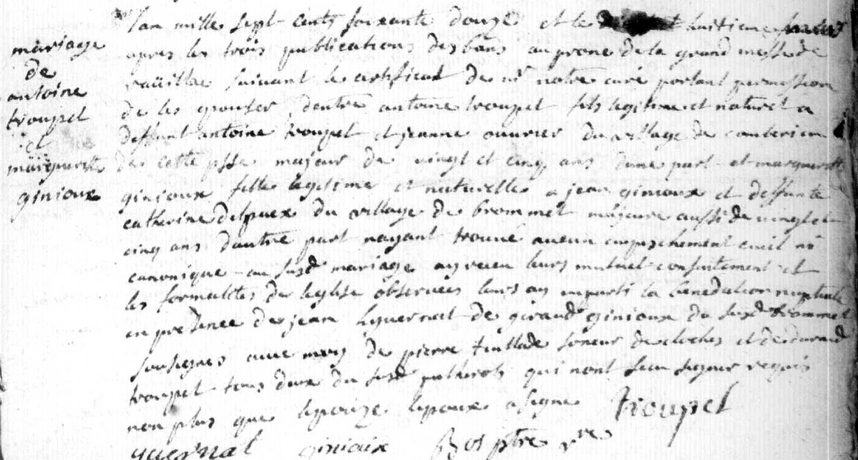 mariage
de
antoine
troupel
et
marguerite
ginioux
L'an mille sept cents soixante douze et le huitieme
apres les trois publications des bans au prone de la grand messe de
suivant le certificat de mr notre curé portant permission
de les epouser d'entre antoine troupel fils legitime et naturel a
deffunt antoine troupel et jeanne ouvrier du village de
de cette psse majeur de vingt et cinq ans d'une part et marguerite
ginioux fille legitime et naturelle a jean ginioux et deffunte
catherine delpuex du village de brommet majeure aussi de vingt et
cinq ans d'autre part nayant trouvé aucun empechement civil ni
canonique au susd mariage ay receu leurs mutuel consentement et
les formalités de leglise observées leurs ay imparti la benediction nuptiale
en presence de jean de giraud ginioux du susd brommet
soussignes avec moy de pierre soneur de cloches et de durand
troupel tous deux du susd qui n'ont seu signer requis
non plus que lepouze lepoux a signe troupel
ginioux Bos ptre vre